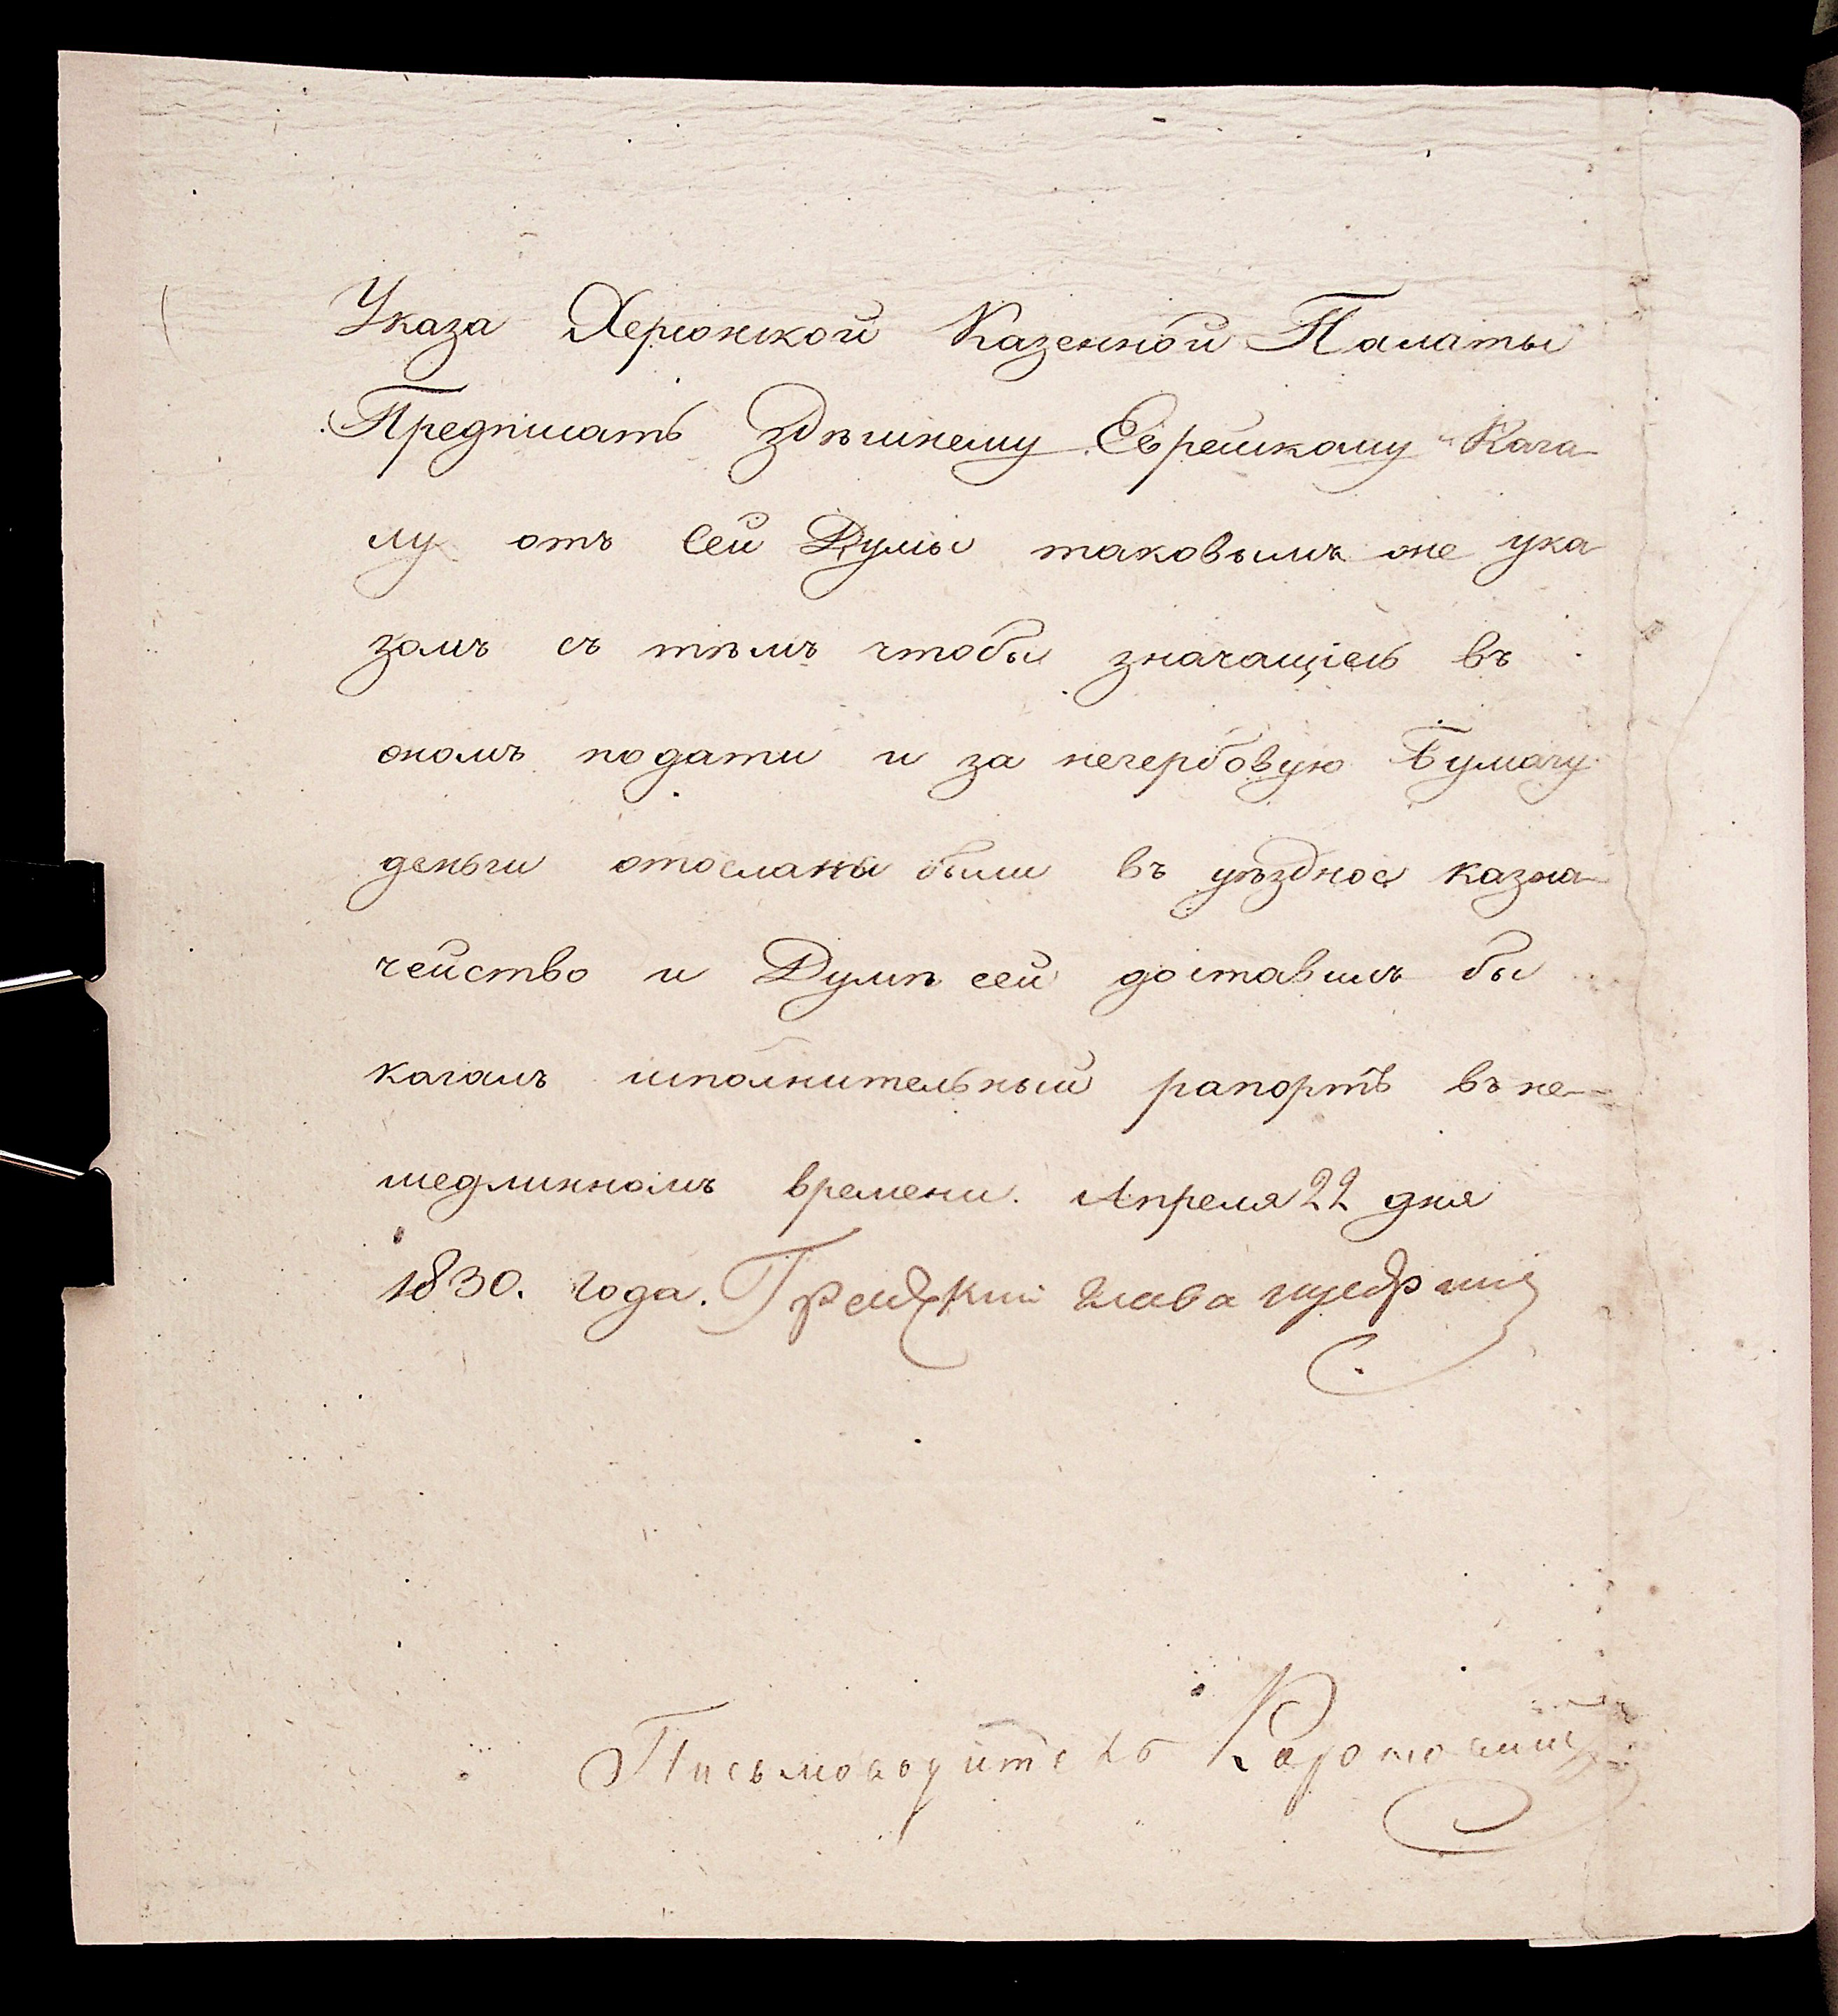 Указа Херсонской Казенной Палаты
Предписать Здѣшнему Еврейскому Кага-
лу отъ Сей Думы таковымъ же ука
зомъ съ тѣмъ чтобы значащіесь въ
ономъ подати и за негербовую Бумагу
деньги отосланы были въ уѣздное казна-
чейство и Думѣ сей доставилъ бы
кагалъ исполнительный рапортъ въ не-
медлинномъ времени. Апреля 22 дня
1830. года. Градский глава
Письмоводитель